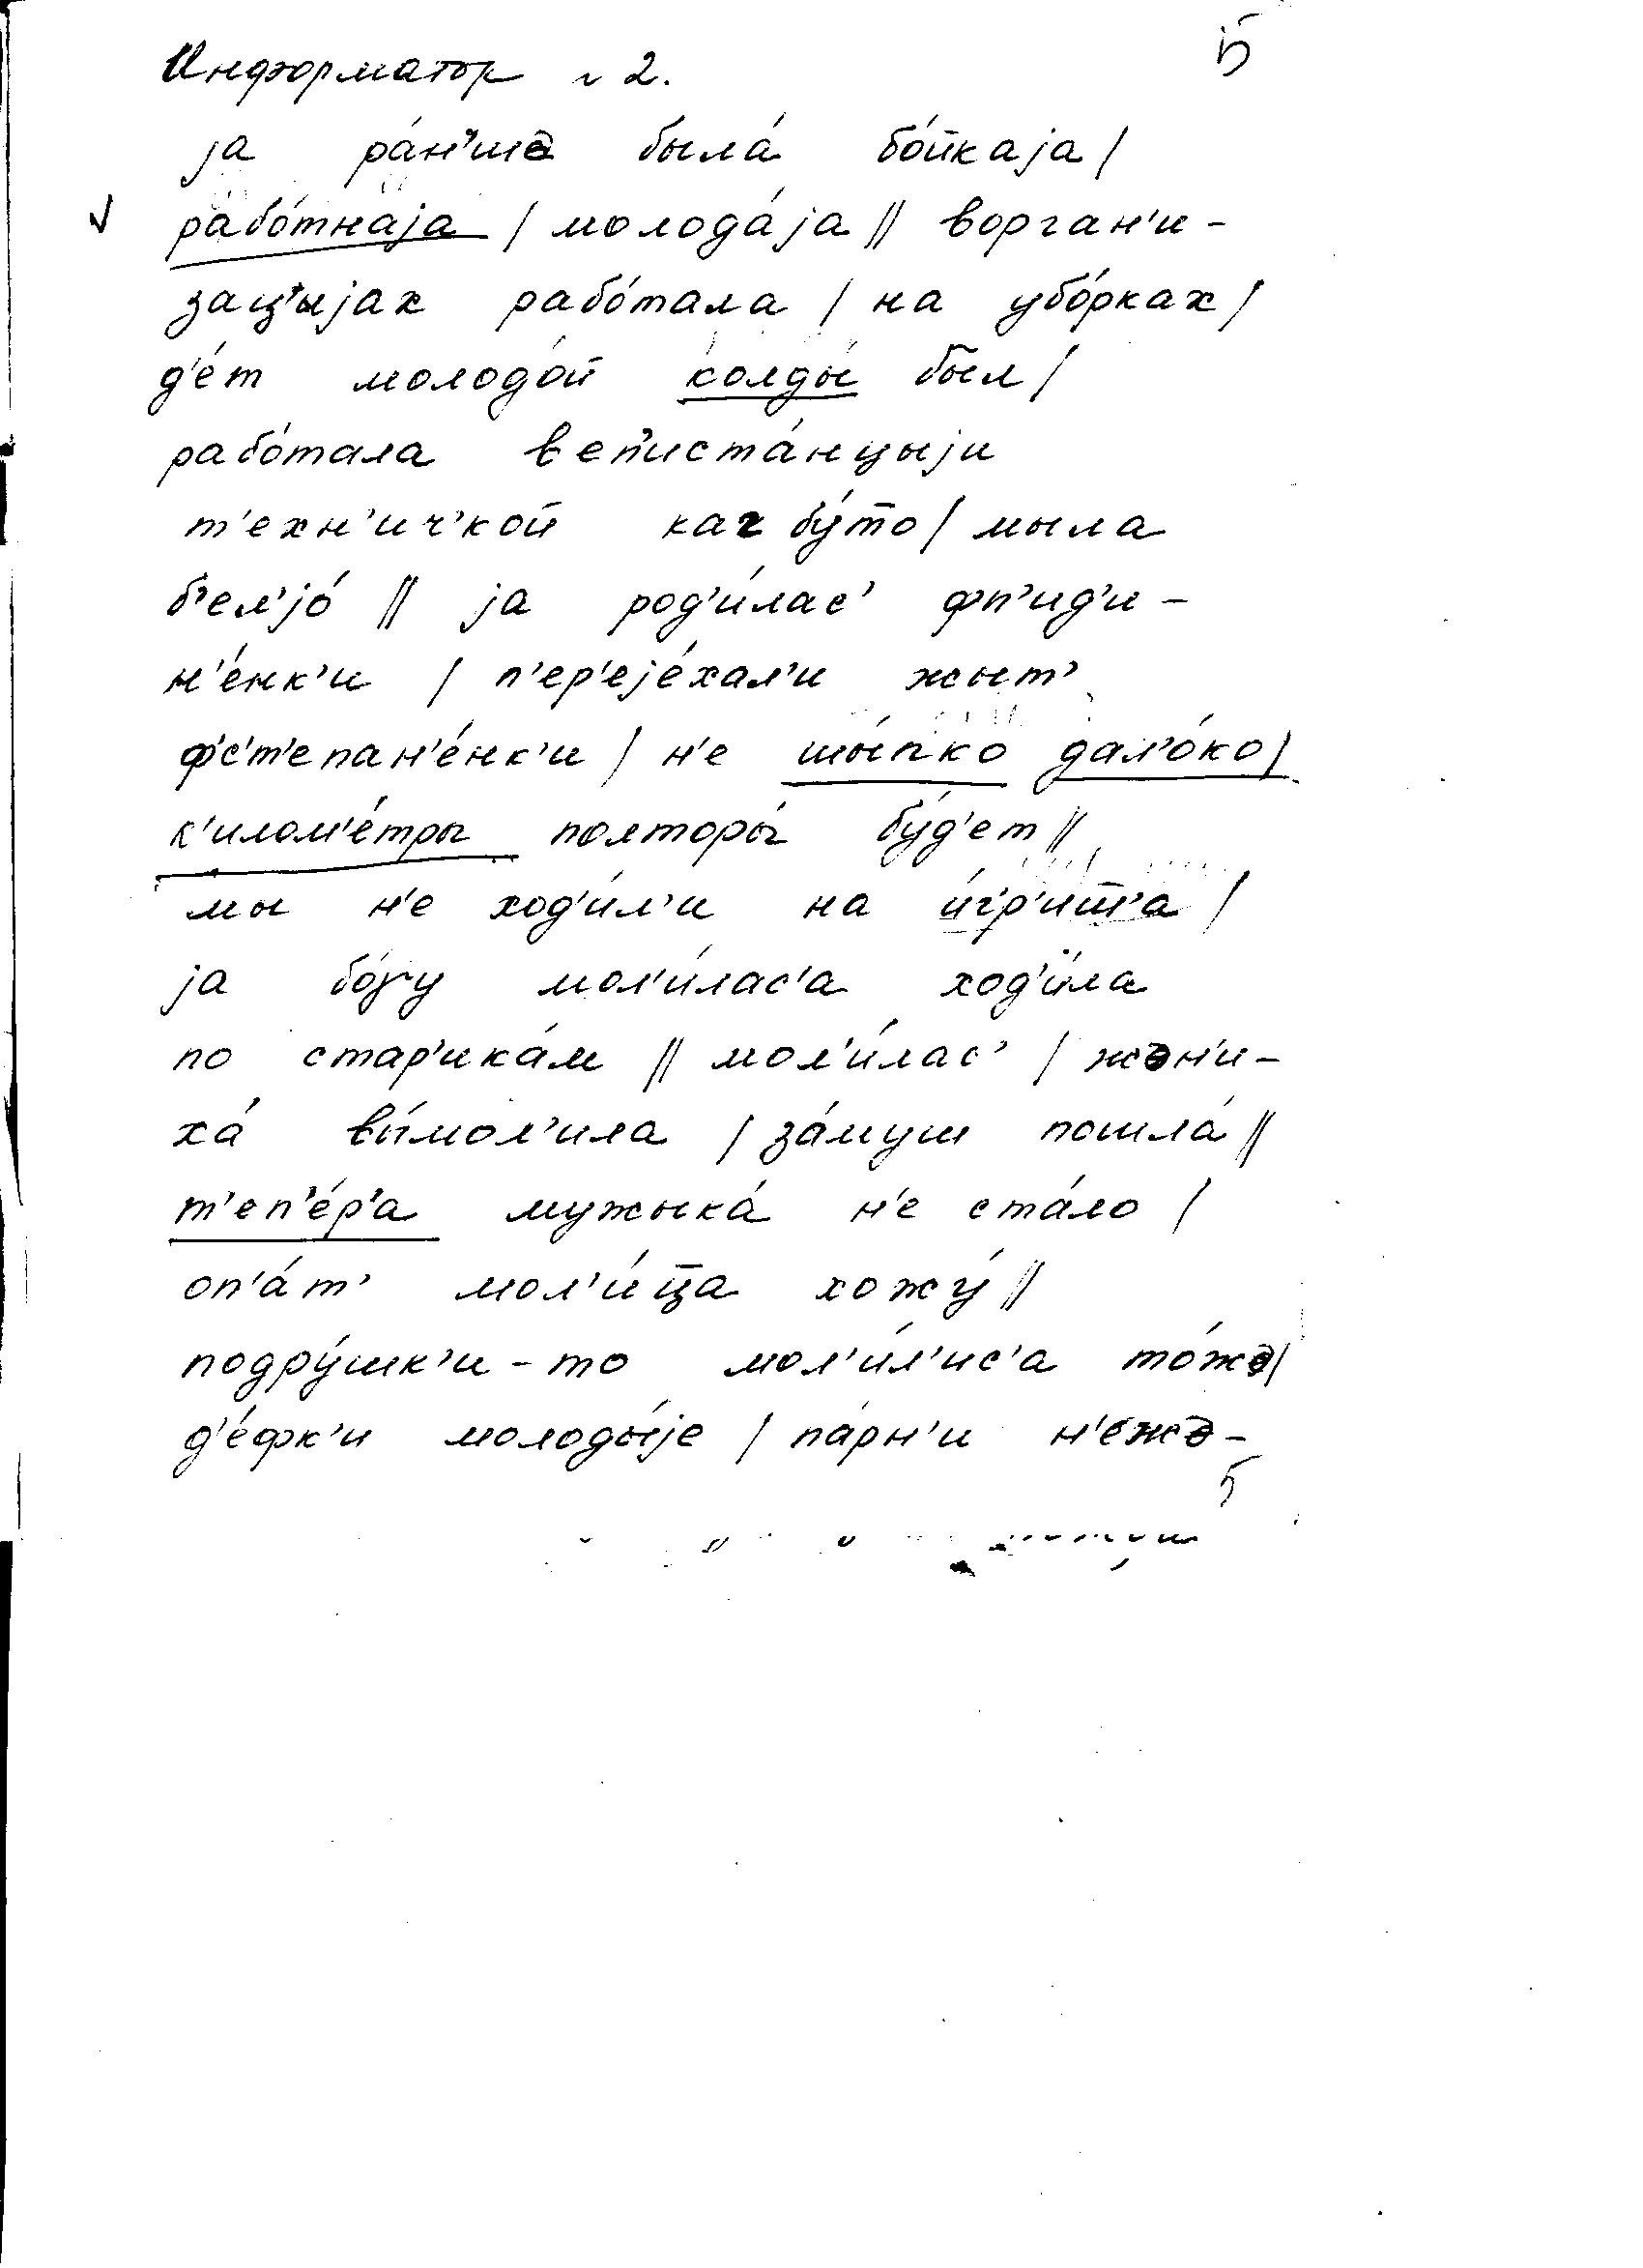 Информатор № 2. 5
ја ра́н'шэ была́ бо́йкаја /
рабо́тнаја / молода́ја // ворган'и-
зац'ыјах рабо́тала / на убо́рках /
д'е́т молодо́й колды́ был /
рабо́тала веп'иста́нцыји
т'ехн'ич'кой каг бу́т̄о / мыла
б'ел'јо́ // ја род'и́лас' фп'ид'и-
н'е́нк'и / п'ер'ејéхал'и жыт'
ф'с'т'епан'е́нк'и / н'е шы́пко дал'о́ко /
к'илом'е́тры полторы́ бу́д'ет //
мы н'е ход'и́л'и на и́гр'иш̄'а /
ја бо́γу мол'и́лас'а ход'и́ла
по стар'ика́м // мол'и́лас' / жэн'и-
ха́ вы́мол'ила / за́муш пошла́ //
т'еп'е́р'а мужыка́ н'е ста́ло /
оп'а́т' мол'и́ц̄а хожу́ //
подру́шк'и-то мол'и́л'ис'а то́жэ /
д'е́фк'и молоды́је / па́рн'и н'е́жэ-
5